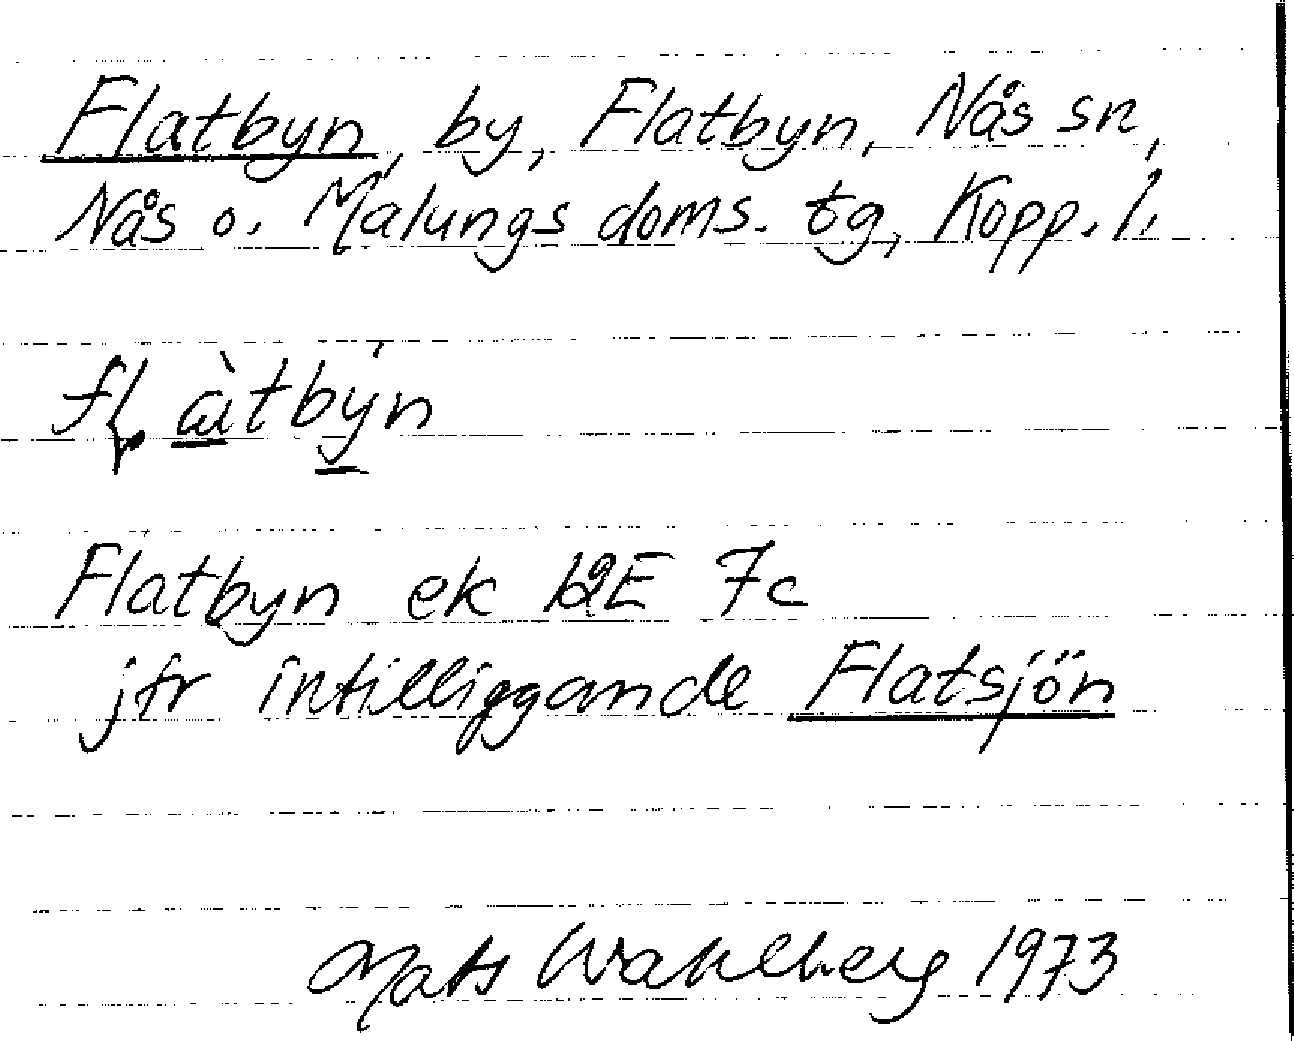 Flatbyn, by, Flatbyn, Nås sn,
Nås o. Malungs doms. tg, Kopp. l.
flàtbýn
Flatbyn ek 12E 7c
jfr intilliggande Flatsjön
Mats Wahlberg 1973